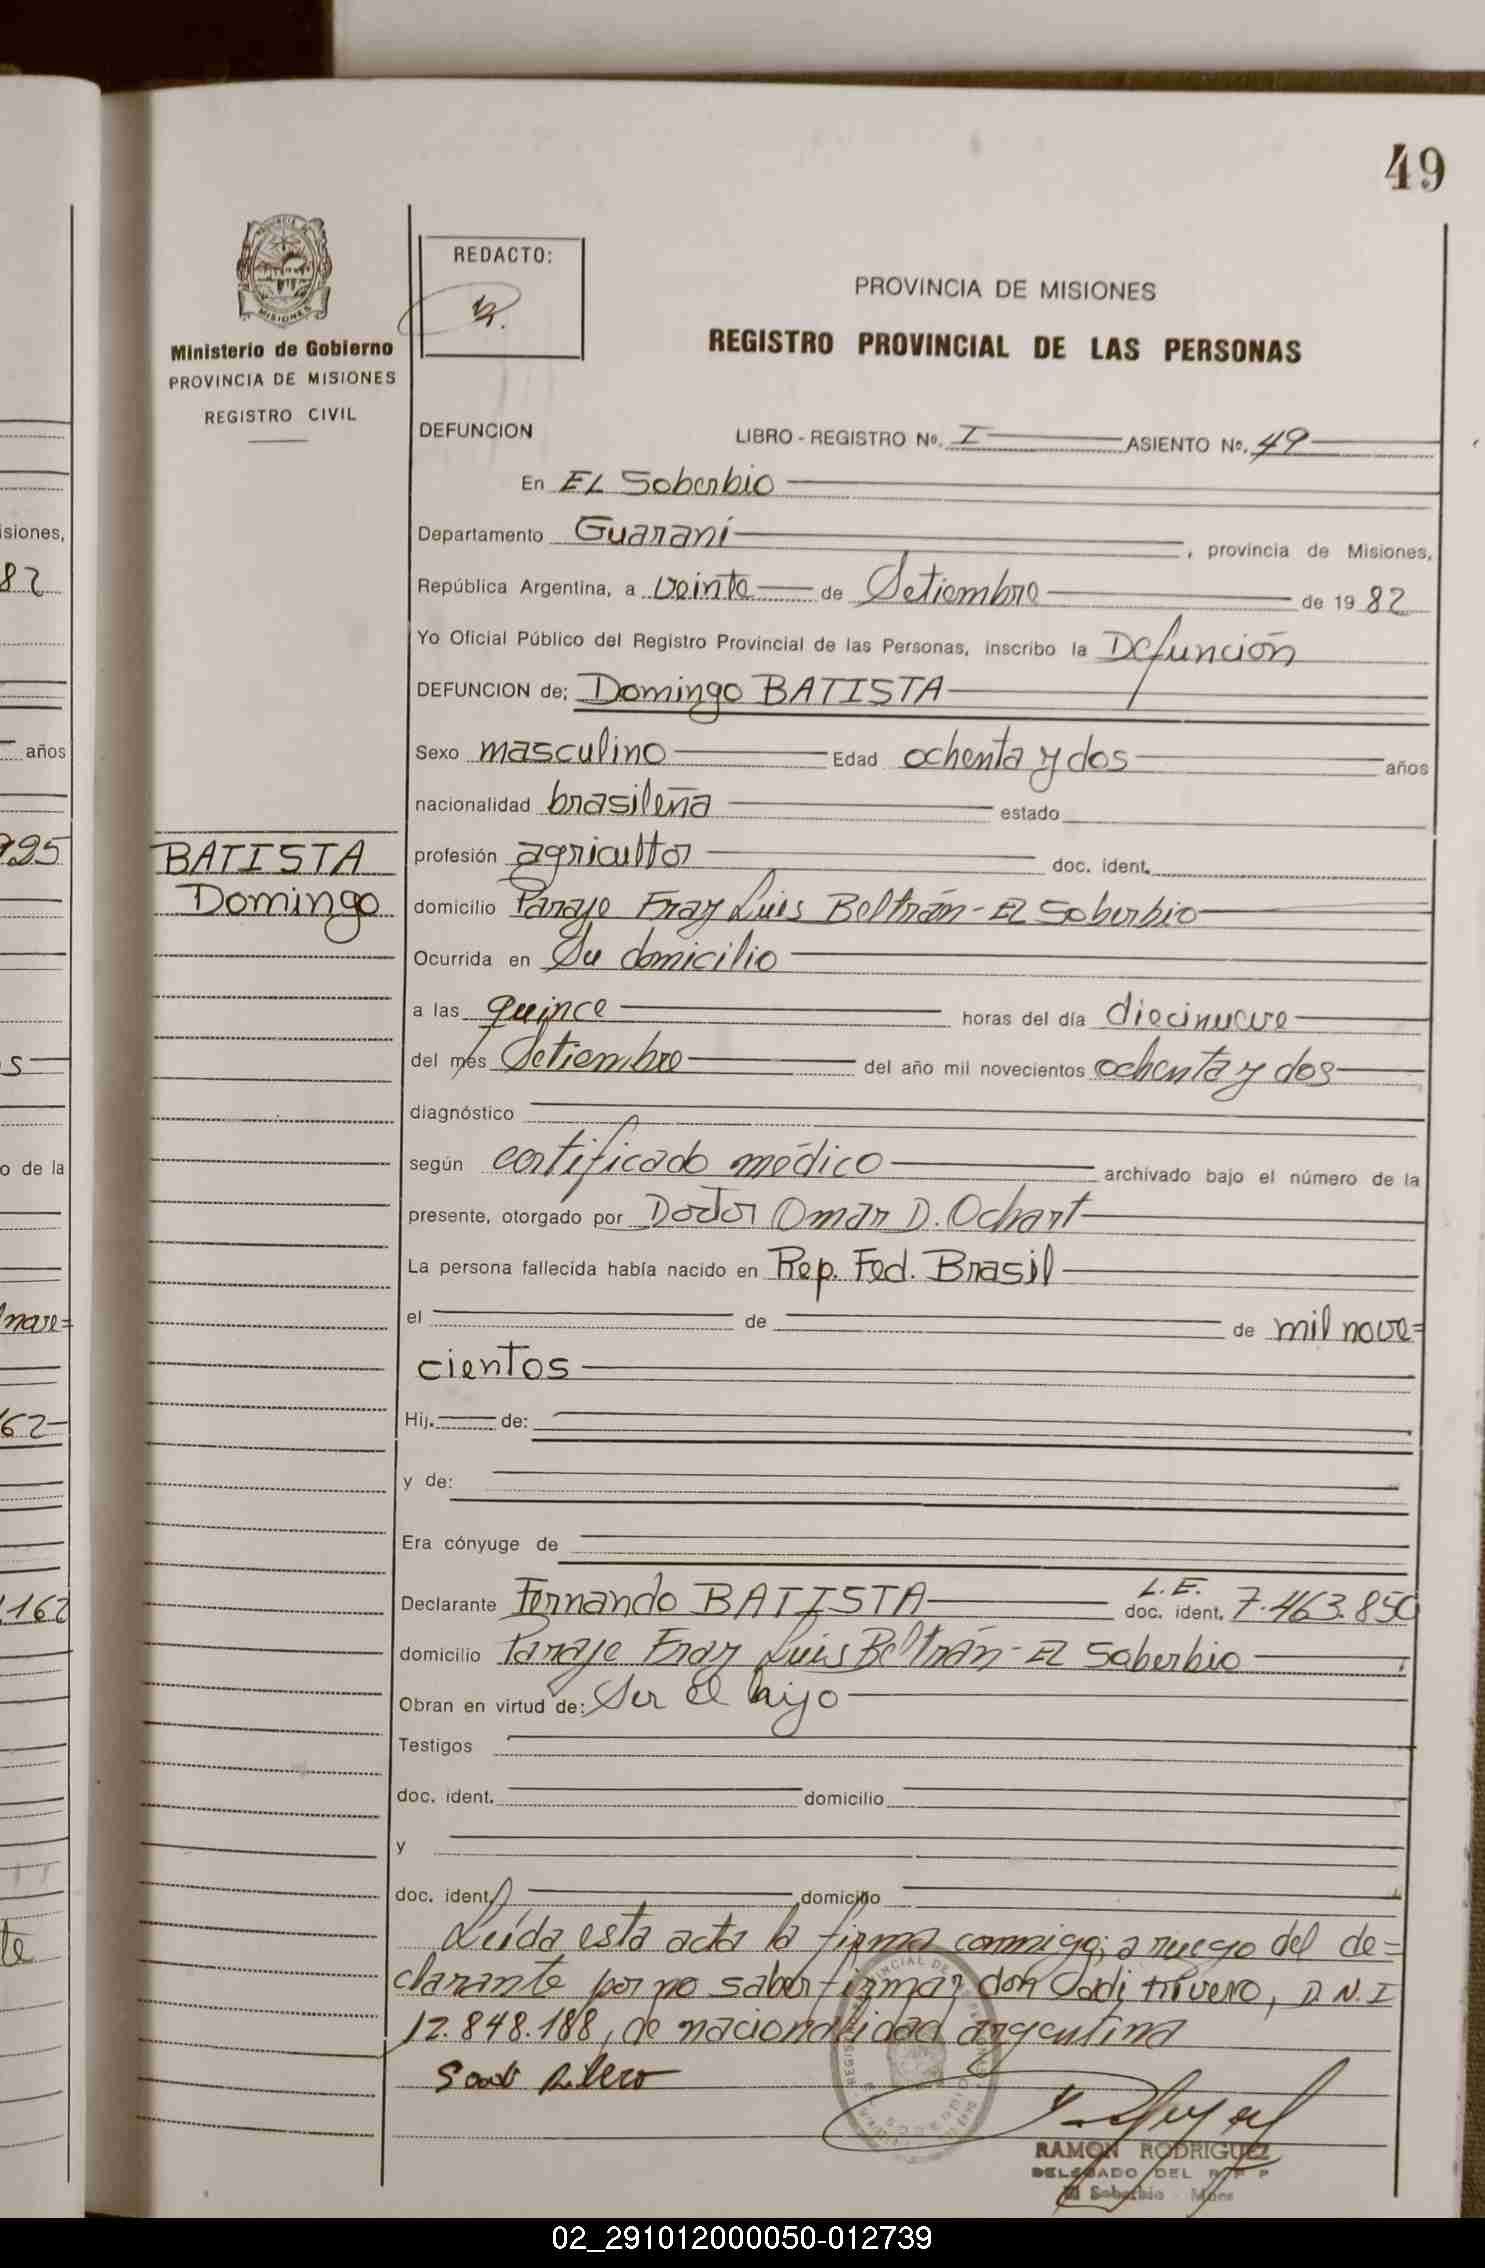 49
REDACTO:
PROVINCIA DE MISIONES
REGISTRO PROVINCIAL DE LAS PERSONAS
MISIONES
Ministerio de Gobierno
PROVINCIA DE MISIONES
REGISTRO CIVIL
DEFUNCION LIBRO - REGISTRO No. I ASIENTO No. 49
En EL Soberbio
Departamento Guaraní, provincia de Misiones,
República Argentina, a veinte de Setiembre de 19 82
Yo Oficial Público del Registro Provincial de las Personas, inscribo la Defunción
DEFUNCION de; Domingo BATISTA
Sexo masculino Edad ochenta y dos años
nacionalidad brasileña estado
BATISTA
Domingo
profesión agricultor doc. ident.
domicilio Paraje Fray Luis Beltrán - EL Soberbio
Ocurrida en Su domicilio
a las quince horas del día diecinueve
del més Setiembre del año mil novecientos ochenta y dos
diagnóstico
según certificado médico archivado bajo el número de la
presente, otorgado por Doctor Omar D. Ochart
La persona fallecida había nacido en Rep. Fed. Brasil
el de de mil nove=
cientos
Hij. de:
y de:
Era cónyuge de
Declarante Fernando BATISTA L.E. doc. ident. 7.463.850
domicilio Paraje Fray Luis Beltrán - EL Soberbio
Obran en virtud de: Ser el hijo
Testigos
doc. ident. domicilio
y
doc. ident. domicilio
Leída esta acta la firma conmigo; a ruego del de=
clarante por no saber firmar don, D.N.I
12.848.188, de nacionalidad argentina
RAMON RODRIGUEZ
DELEGADO DEL R P P
El Soberbio - Mnes
isiones,
82
años
925
s
o de la
nove=
62
162
te
02_291012000050-012739